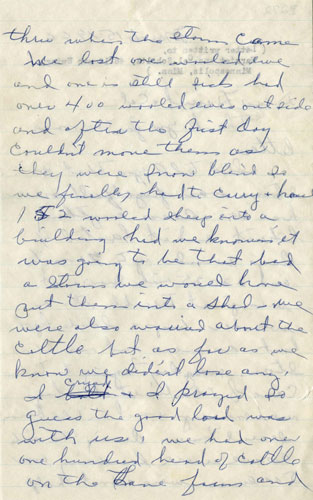 thru when the storm came
We lost one wooled ewe
and one is still sick had
over 400 wooled ewes outside
and after the first day
couldn't move them as
they were snow blind so
we finally had to carry & haul
152 wooled sheep into a
building had we known it
was going to be that bad
a storm we would have
put them into a shed - we
were also worried about the
cattle but as far as we
know we didn't lose any,
I cried & I prayed so
guess the good lord was
with us, we had over
one hundred head of cattle
on the farm and